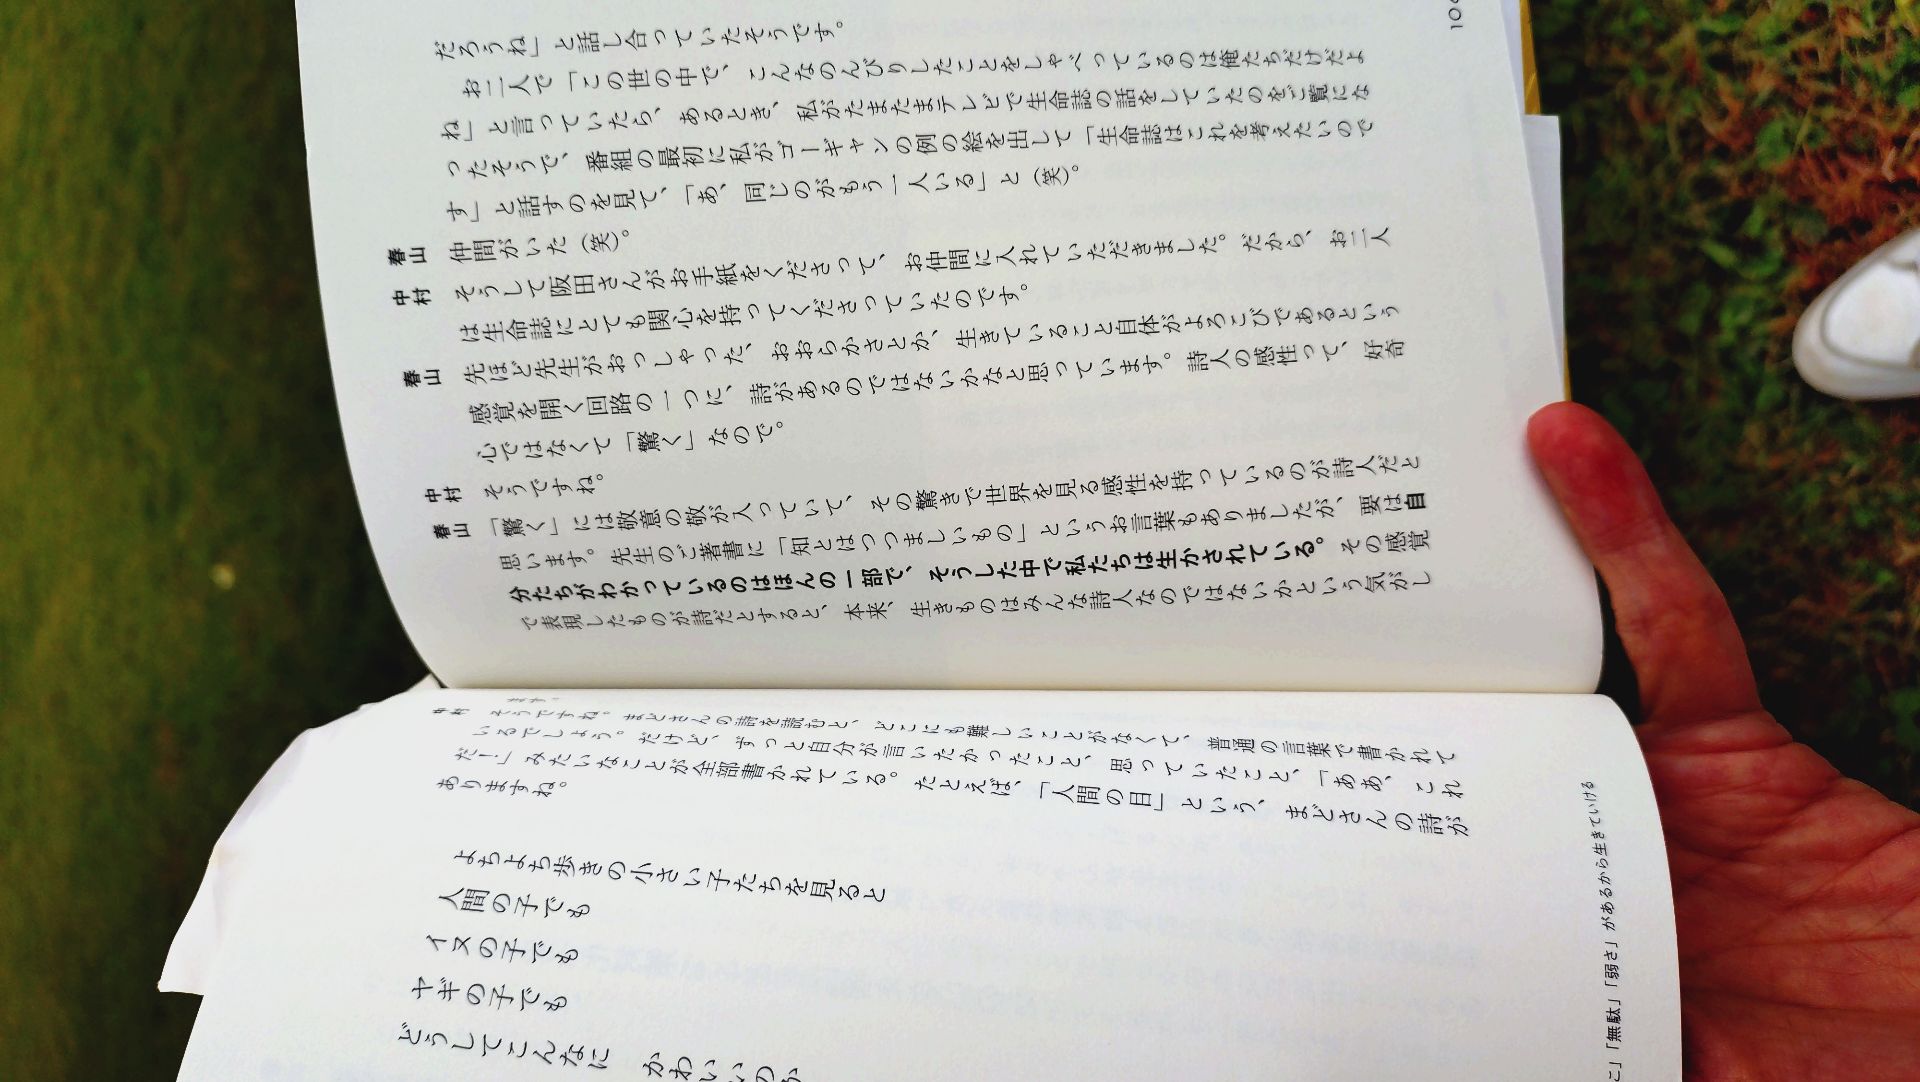 だろうね」と話し合っていたそうです。
お二人で「この世の中で、こんなのんびりしたことをしゃべっているのは俺たちだけだよ
ね」と言っていたら、あるとき、私がたまたまテレビで生命誌の話をしていたのをご覧にな
ったそうで、番組の最初に私がゴーギャンの例の絵を出して「生命誌はこれを考えたいので
す」と話すのを見て、「あ、同じのがもう一人いる」と（笑）。
春山 仲間がいた（笑）。
中村 そうして阪田さんがお手紙をくださって、お仲間に入れていただきました。だから、お二人
は生命誌にとても関心を持ってくださっていたのです。
春山 先ほど先生がおっしゃった、おおらかさとか、生きていること自体がよろこびであるという
感覚を開く回路の一つに、詩があるのではないかなと思っています。詩人の感性って、好奇
心ではなくて「驚く」なので。
中村 そうですね。
春山 「驚く」には敬意の敬が入っていて、その驚きで世界を見る感性を持っているのが詩人だと
思います。先生のご著書に「知とはつつましいもの」というお言葉もありましたが、要は自
分たちがわかっているのはほんの一部で、そうした中で私たちは生かされている。その感覚
で表現したものが詩だとすると、本来、生きものはみんな詩人なのではないかという気がし
ます。
中村 そうですね。まどさんの詩を読むと、どこにも難しいことがなくて、普通の言葉で書かれて
いるでしょう。だけど、ずっと自分が言いたかったこと、思っていたこと、「ああ、これ
だ！」みたいなことが全部書かれている。たとえば、「人間の目」という、まどさんの詩が
ありますね。
よちよち歩きの小さい子たちを見ると
人間の子でも
イヌの子でも
ヤギの子でも
どうしてこんなに　かわいいのか
こ」「無駄」「弱さ」があるから生きていける